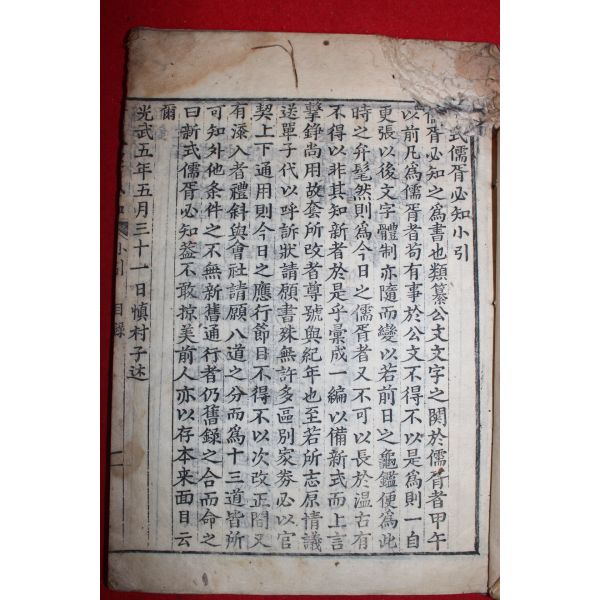 式儒胥必知小引
儒胥必知之爲書也類纂公文文字之関於儒胥者甲午
以前凡爲儒胥者苟有事於公文不得不以是爲則一自
更張以後文字體制亦隨而變以若前日之龜鑑便爲此
時之弁髦然則爲今日之儒胥者又不可以長於温古有
不得以非其知新者於是乎彙成一編以備新式而上言
擊錚尚用故套所改者尊號與紀年也至若所志原情議
送單子代以呼訴狀請願書殊無許多區別家券必以官
契上下通用則今日之應行節目不得不以次改正間又
有添入者禮斜與會社請願八道之分而爲十三道皆所
可知外他條件之不無新舊通行者仍舊錄之合而命之
曰新式儒胥必知葢不敢掠美前人亦以存本来面目云
爾
光武五年五月三十一日慎村子述
小引
目錄
一